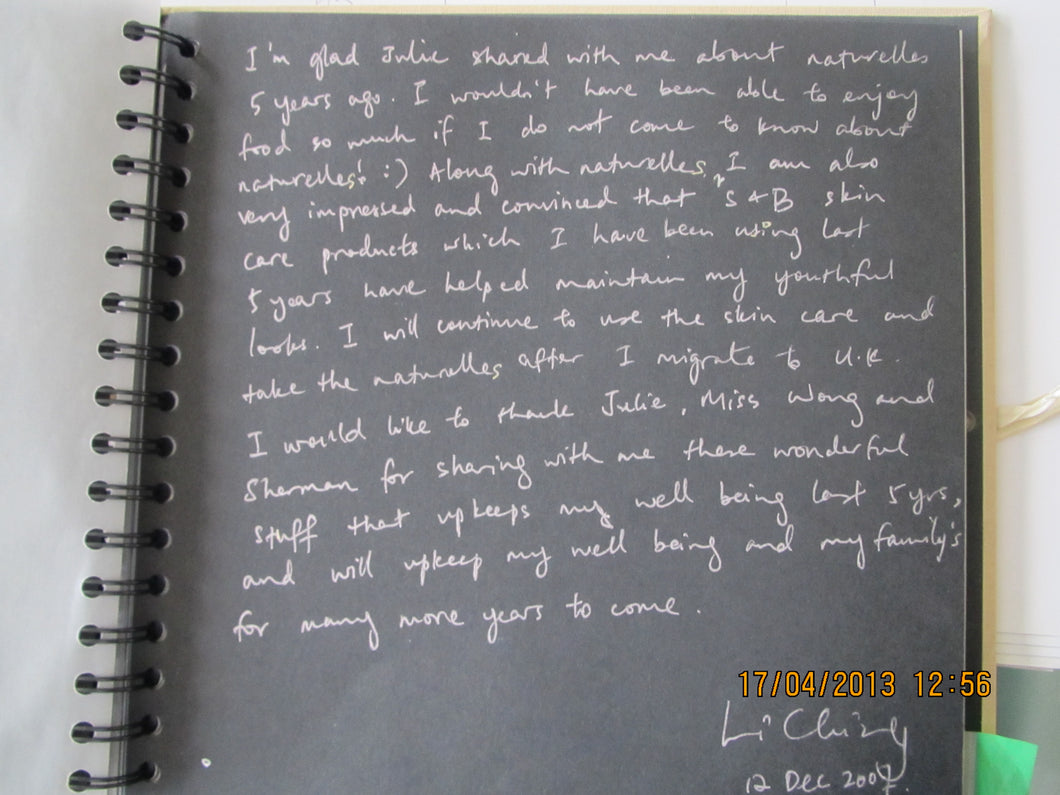 I'm glad Julie shared with me about naturelles
5 years ago. I wouldn't have been able to enjoy
food so much if I do not come to know about
naturelles! :) Along with naturelles, I am also
very impressed and convinced that S & B skin
care products which I have been using last
5 years have helped maintain my youthful
looks. I will continue to use the skin care and
take the naturelles after I migrate to U.K.
I would like to thank Julie, Miss Wong and
Sherman for sharing with me these wonderful
stuff that upkeeps my well being last 5 yrs,
and will upkeep my well being and my family's
for many more years to come.
17/04/2013 12:56
Li Ching
12 Dec 2007.